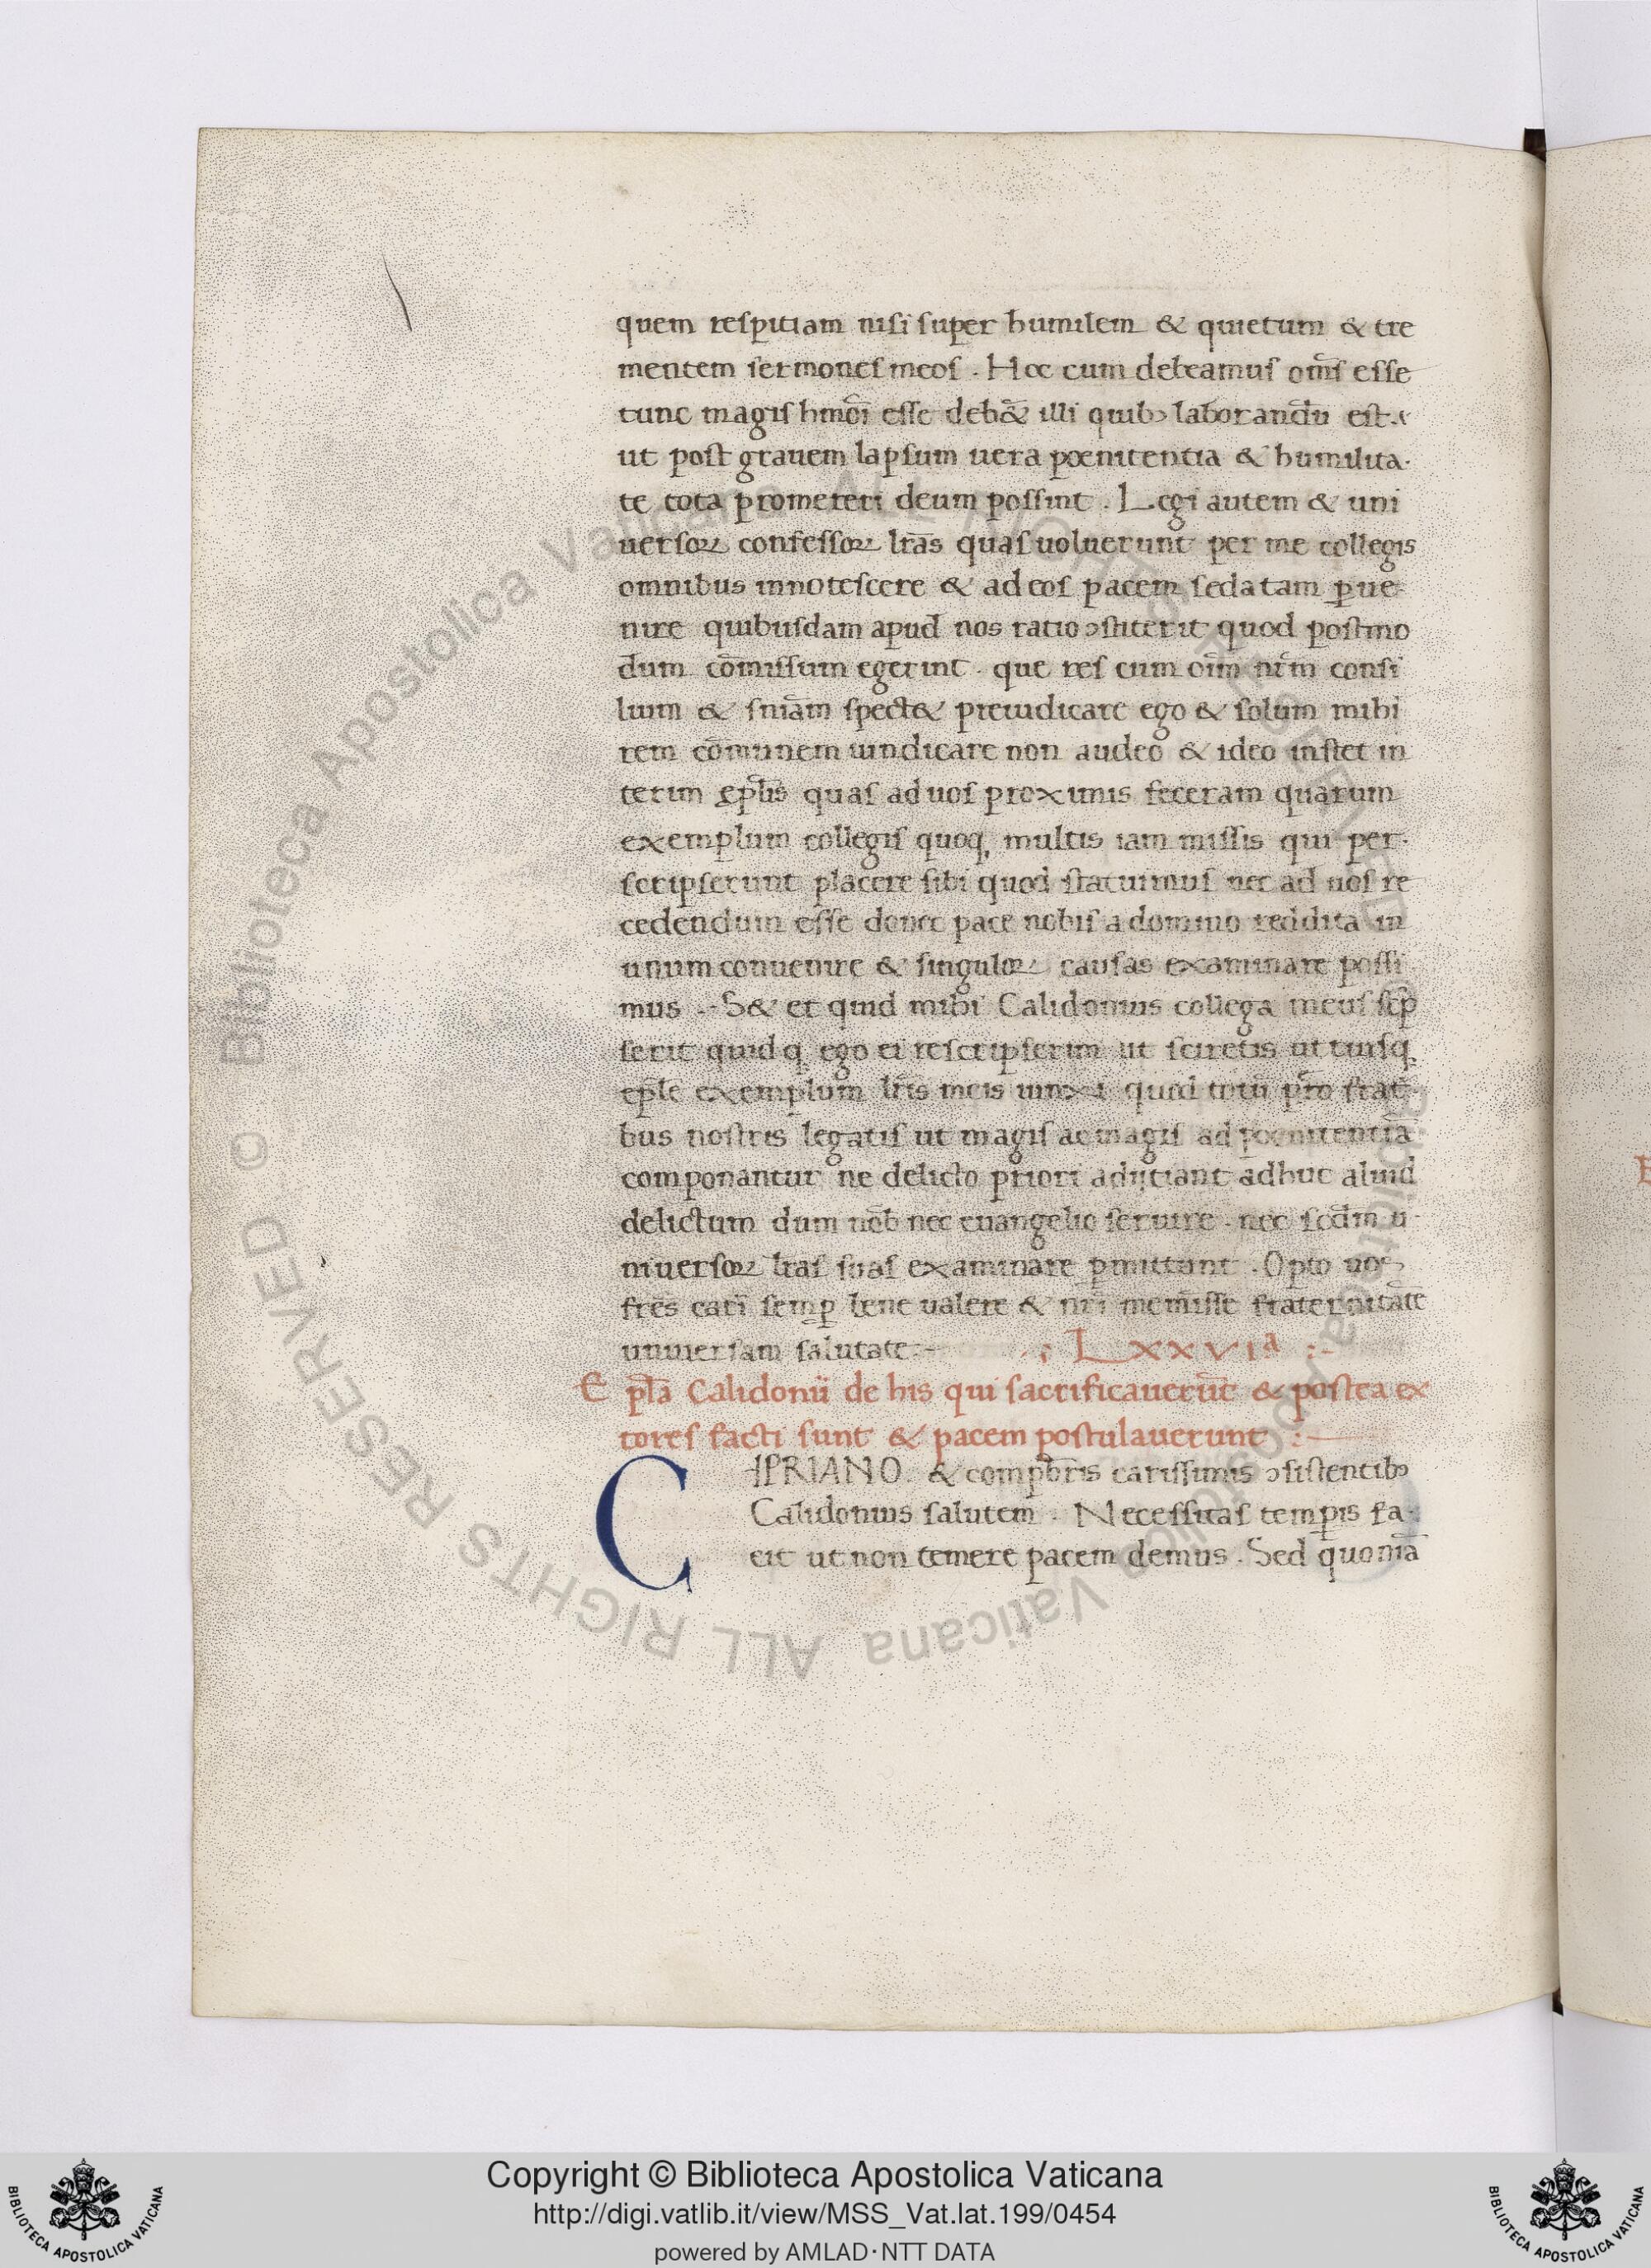 quem respitiam nisi super humilem & quietum & tre
mentem sermones meos . Hoc cum debeamus om̄s esse
tunc magis hmōi esse deb& illi quibꝫ laborandū est .
ut post grauem lapsum uera poenitentia & humilita-
te tota promereri deum possint . Legi autem & uni
uersoꝝ confessoꝝ lr̄as quas uoluerunt per me collegis
omnibus innotescere & ad eos pacem sedatam ꝑue
nire quibusdam apud nos ratio ↄstiterit quod postmo
dum cōmissum egerint . que res cum oīm nr̄m consi
lium & sniam spect& preiudicare ego & solum mihi
rem cōmunem uindicare non audeo & ideo instet in
terim epl̄is quas ad uos proxunis feceram quarum
exemplum collegis quoqꝫ multis iam missis qui per-
scripserunt placere sibi quod statuimus nec ad nos re
cedendum esse donec pace nobis a domino reddita in
unum conuenire & singuloꝝ causas examinare possi
mus .- S& et quid mihi Calidonius collega meus sc̄p
serit quid qꝫ ego ei rescripserim ut sciretis utriusqꝫ
epl̄e exemplum lr̄is meis iunxi quod totū pro frat
bus nostris legatis ut magis ac magis ad poenitentiā
componantur ne delicto priori adijciant adhuc aliud
delictum dum nec euangelio seruire . nec scdm u-
niuersoꝝ lr̄as suas examinare ꝑmittunt . Opto uos
fr̄es cari semꝑ bene ualere & nr̄i meminisse fraternitatē
uniuersam salutate :-
. ; LXXVIᵃ :-
E pl̄a Calidonii de his qui sacrificauerūt & postea ex
tores facti sunt & pacem postulauerunt :-
CIPRIANO . & compbr̄is carissimis ↄsistentibꝫ
Calidonius salutem . Necessitas temꝑis fa-
cit ut non temere pacem demus . Sed quoniā
© Biblioteca Apostolica Vaticana ALL RIGHTS RESERVED
Copyright © Biblioteca Apostolica Vaticana
http://digi.vatlib.it/view/MSS_Vat.lat.199/0454
powered by AMLAD·NTT DATA
BIBLIOTECA APOSTOLICA VATICANA
BIBLIOTECA APOSTOLICA VATICANA